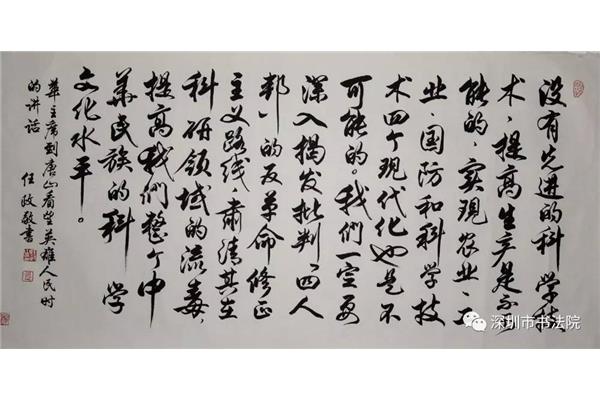 没有先进的科学技
术，提高生产是不可
能的，实現农业、工
业、国防和科学技
术四个现代化也是不
可能的。我们一定要
深入揭发批判“四人
邦”的反革命修正
主义路线，肃清其在
科研领域的流毒，
提高我們整个中
華民族的科学
文化水平。
華主席到唐山看望英雄人民时
的讲话 任政敬书
深圳市书法院